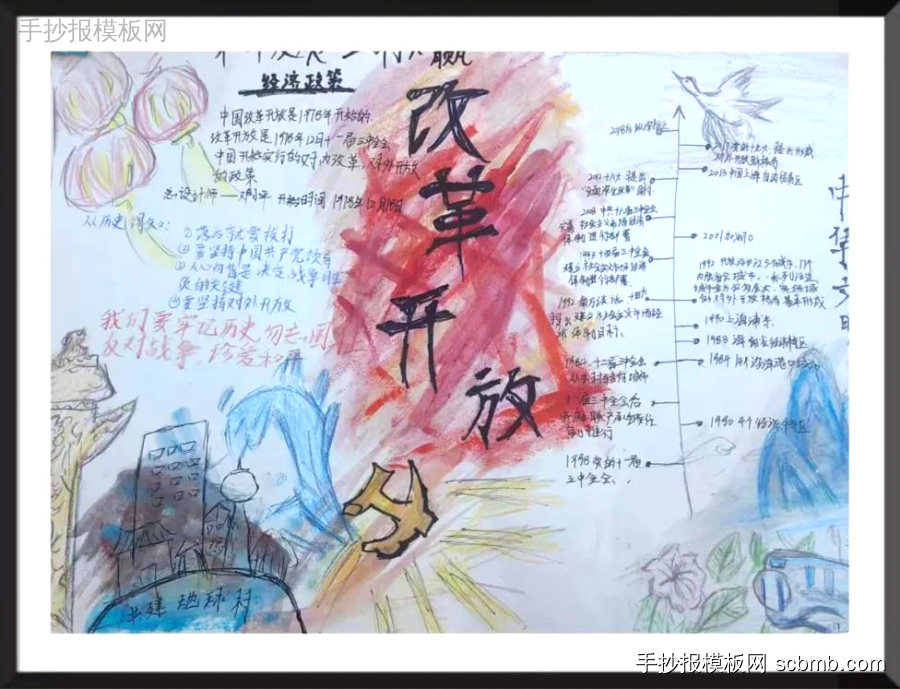 手抄报模板网
赢
经济政策
中国改革开放是1978年开始的
改革开放是1978年12月十一届三中全会
中国开始实行的对内改革,对外开放
的政策
总设计师——邓小平 开始时间 1978年12月18日
从历史得知:
①落后就要挨打
②要坚持中国共产党领导
③人心向背是决定战争胜
负的关键
④要坚持对外开放
我们要牢记历史,勿忘国耻
反对战争,珍爱和平
改革开放
共建地球村
2012 十八大 提出
2003 中共十六届三中全会
完善社会主义市场经济
体制进行部署
1993 十四届三中全会
建立社会主义市场经济
体制进行部署
1992 南方谈话,十四大
提出建立社会主义市场经
济体制目标
1984 十二届三中全会
十一届三中全会后
1978 党的十一届
三中全会
2013 中国上海自由贸易区
2001 加入WTO
1990 上海浦东
1988 海南省经济特区
1984 14个沿海港口城市
1980 4个经济特区
中华文明
手抄报模板网 scbmb.com